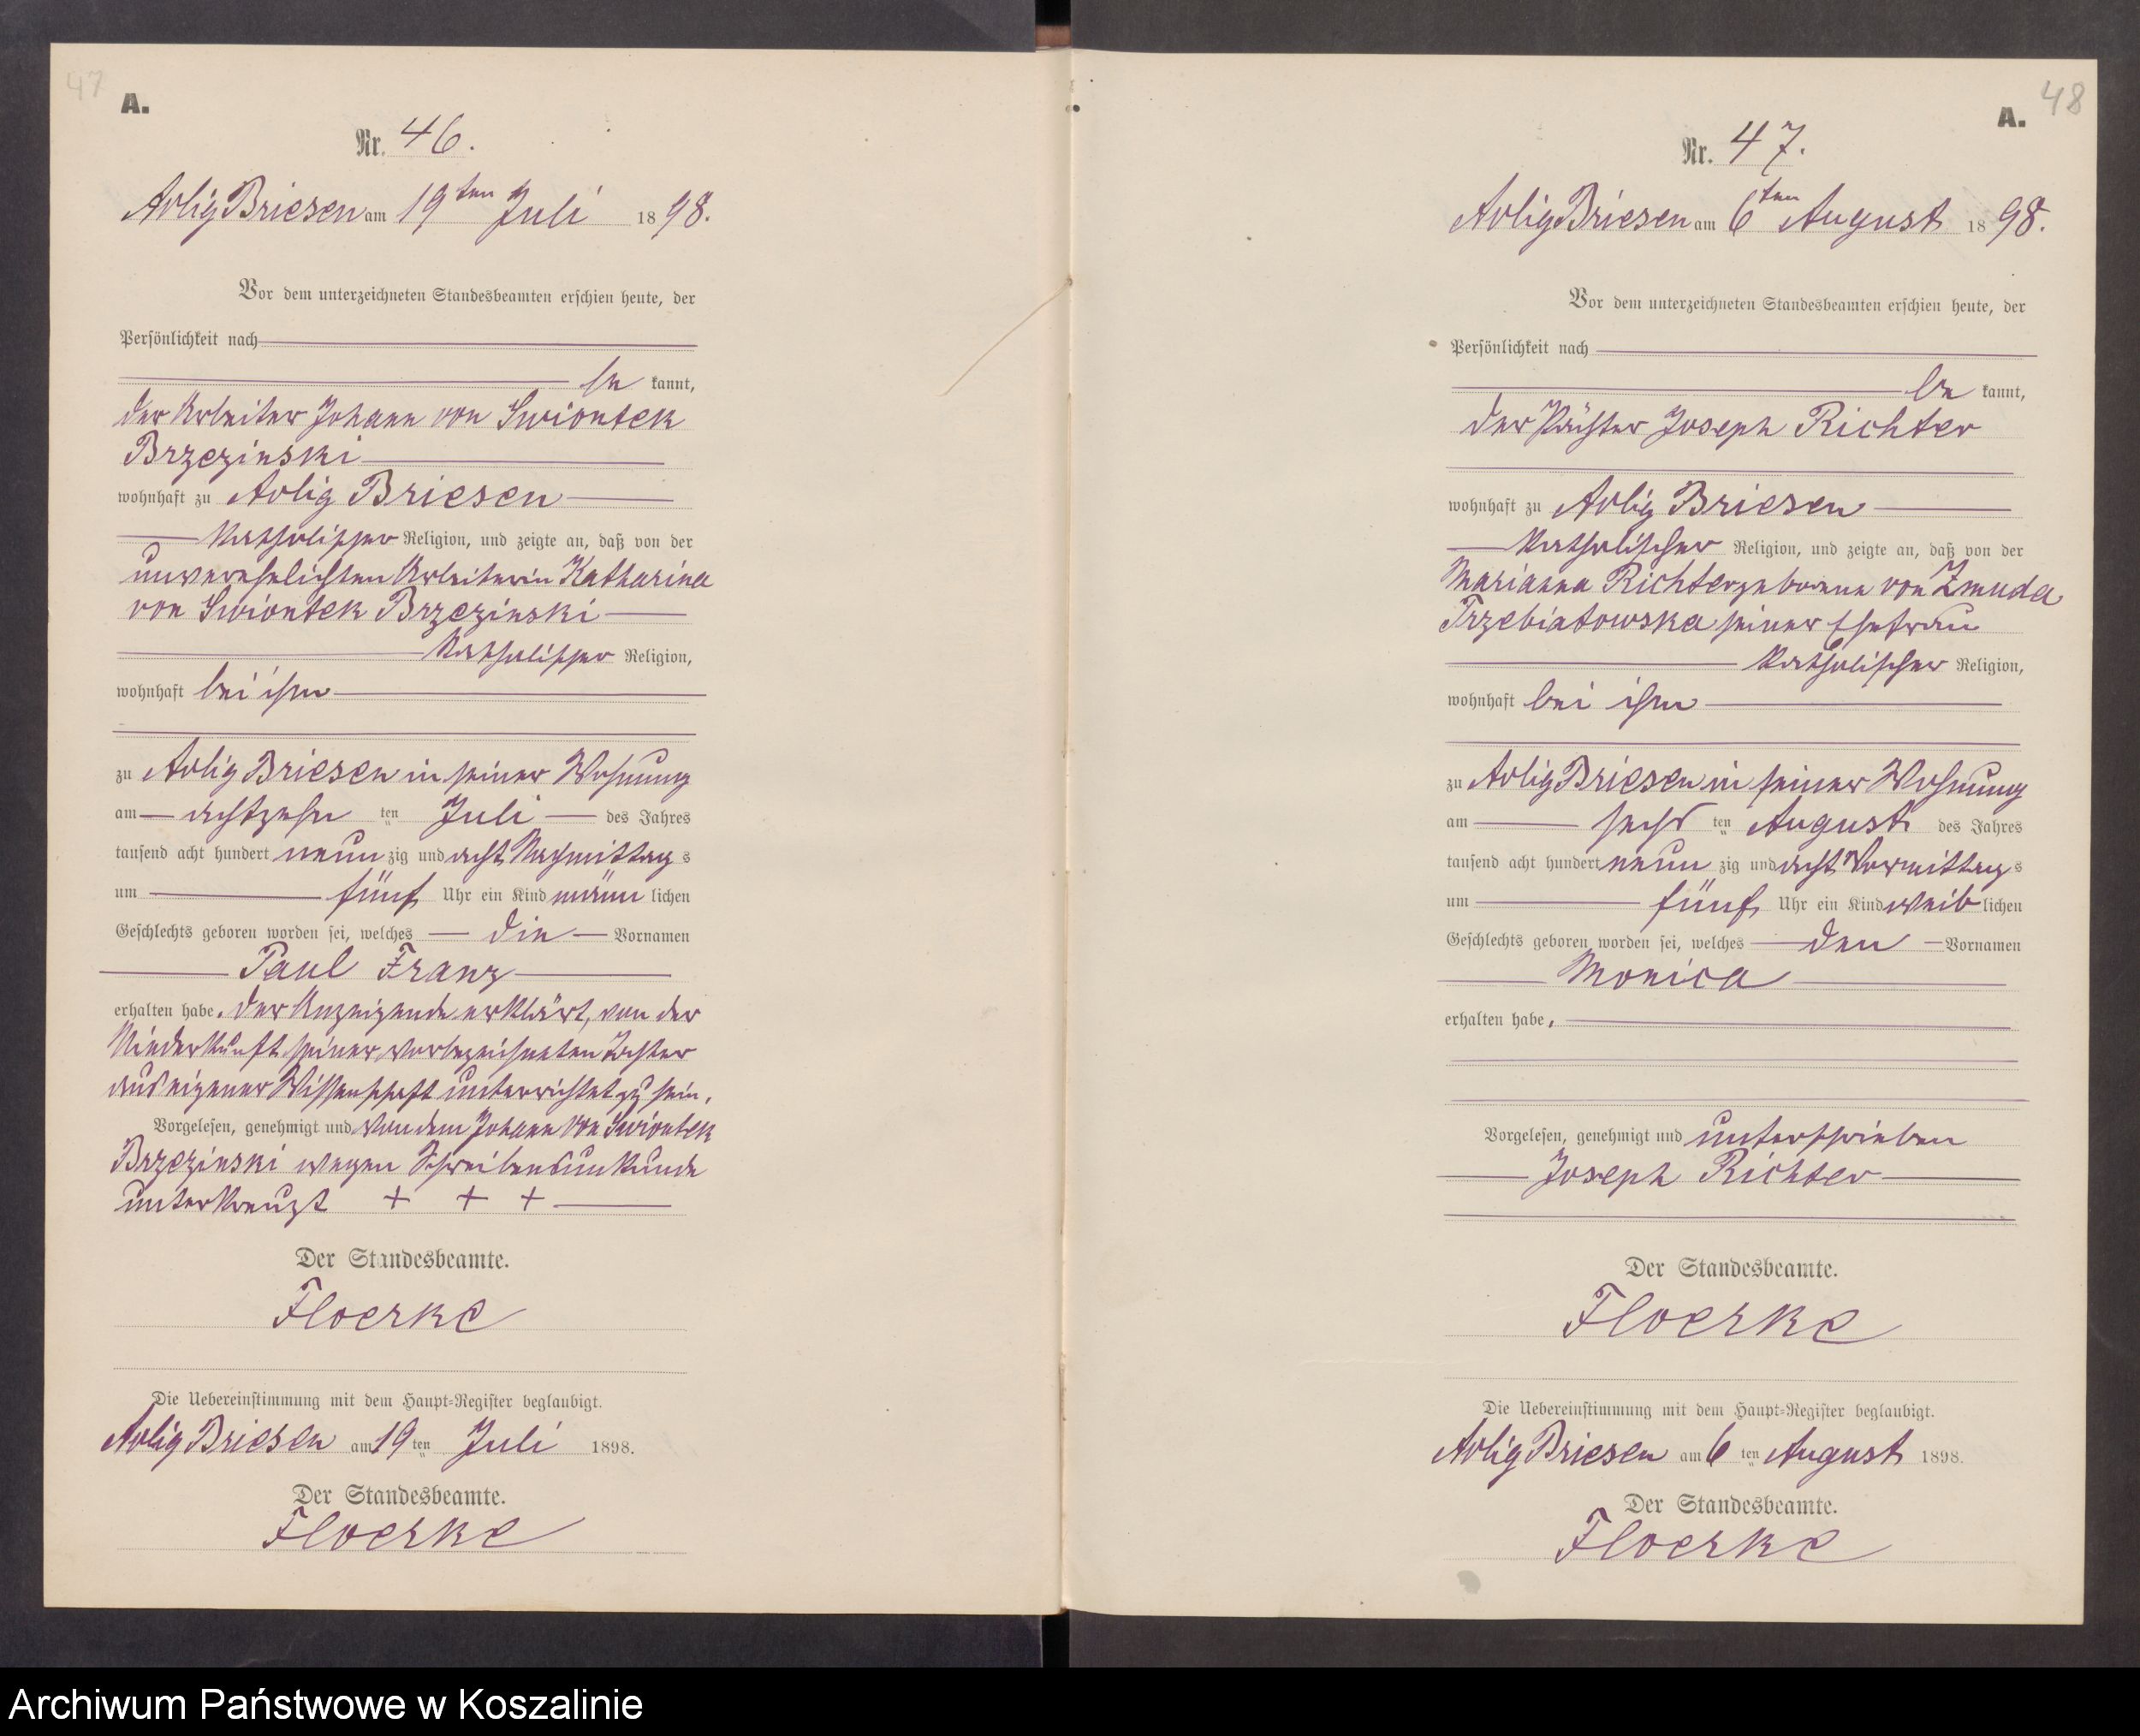 47
A.
Nr. 46.
Adlig Briesen am 19ten Juli 1898.
Vor dem unterzeichneten Standesbeamten erschien heute, der
Persönlichkeit nach
be kannt,
der Arbeiter Johann von Swiontek
Brzezinski
wohnhaft zu Adlig Briesen
katholischer Religion, und zeigte an, daß von der
unverehelichten Arbeiterin Katharina
von Swiontek Brzezinski
katholischer Religion,
wohnhaft bei ihm
zu Adlig Briesen in seiner Wohnung
am achtzehn ten Juli des Jahres
tausend acht hundert neun zig und acht Nachmittag s
um fünf Uhr ein Kind männ lichen
Geschlechts geboren worden sei, welches die Vornamen
Paul Franz
erhalten habe. Der Anzeigende erklärt, von der
Niederkunft seiner vorbezeichneten Tochter
aus eigener Wissenschaft unterrichtet zu sein.
Vorgelesen, genehmigt und von dem Johann von Swiontek
Brzezinski wegen Schreibensunkunde
unterkreuzt + + +
Der Standesbeamte.
Floerke
Die Uebereinstimmung mit dem Haupt-Register beglaubigt.
Adlig Briesen am 19 ten Juli 1898.
Der Standesbeamte.
Floerke
48
A.
Nr. 47.
Adlig Briesen am 6ten August 1898.
Vor dem unterzeichneten Standesbeamten erschien heute, der
Persönlichkeit nach
be kannt,
der Joseph Richter
wohnhaft zu Adlig Briesen
katholischer Religion, und zeigte an, daß von der
Marianna Richter geborene von Zmuda
Trzebiatowska seiner Ehefrau
katholischer Religion,
wohnhaft bei ihm
zu Adlig Briesen in seiner Wohnung
am sechs ten August des Jahres
tausend acht hundert neun zig und acht Vormittag s
um fünf Uhr ein Kind weib lichen
Geschlechts geboren worden sei, welches den Vornamen
Monica
erhalten habe.
Vorgelesen, genehmigt und unterschrieben
Joseph Richter
Der Standesbeamte.
Floerke
Die Uebereinstimmung mit dem Haupt-Register beglaubigt.
Adlig Briesen am 6 ten August 1898.
Der Standesbeamte.
Floerke
Archiwum Państwowe w Koszalinie